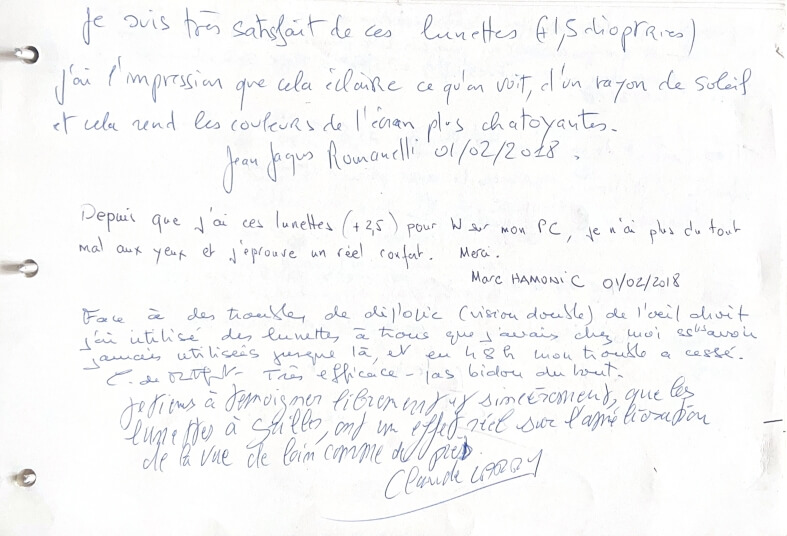 Je suis très satisfait de ces lunettes (+1,5 dioptraies)
j'ai l'impression que cela éclaire ce qu'on voit, d'un rayon de soleil
et cela rend les couleurs de l'écran plus chatoyantes.
Jean Jaques Romanelli 01/02/2018.
Depuis que j'ai ces lunettes (+2,5) pour W sur mon PC, je n'ai plus du tout
mal aux yeux et j'éprouve un réel confort. Merci.
Marc HAMONIC 01/02/2018
Face à des troubles de diplopie (vision double) de l'oeil droit
j'ai utilisé des lunettes à trous que j'avais chez moi sans avoir
jamais utilisées jusque là, et en 48h mon trouble a cessé.
Très efficace - pas bidon du tout.
Je tiens à témoigner librement et sincèrement, que les
lunettes à grilles, ont un effet réel sur l'amélioration
de la vue de loin comme de près.
Claude